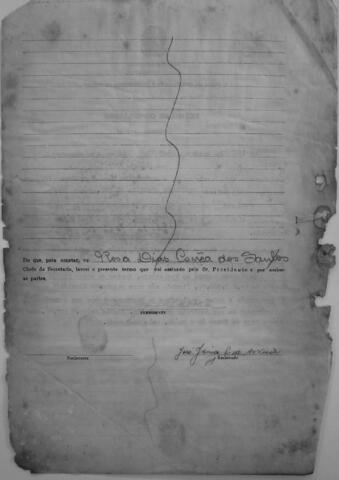 Do que, para constar, eu Rosa Dias Corrêa dos Santos
Chefe da Secretaria, lavrei o presente termo que vai assinado pelo Sr. Presidente e por ambas
as partes.
PRESIDENTE
Reclamante
José
Reclamado